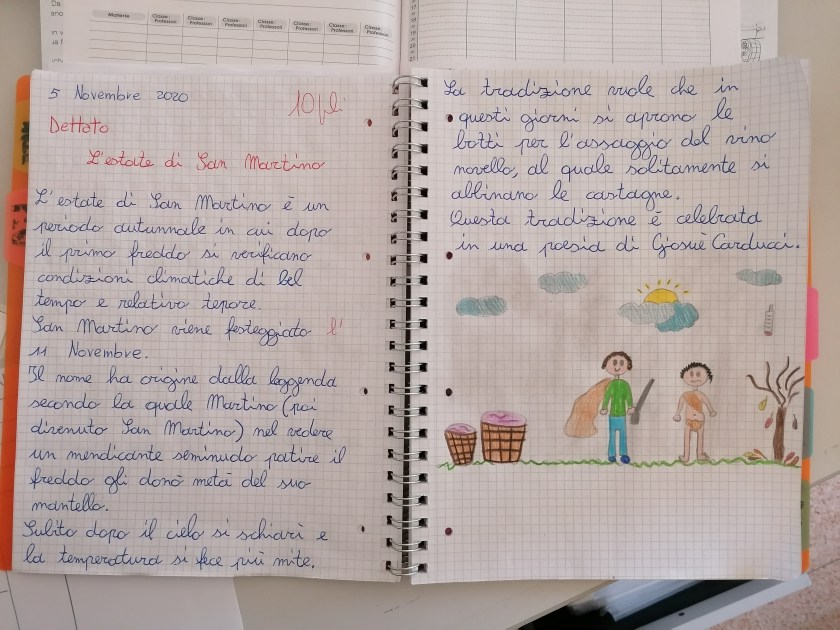 Materie Classe: Professori Classe: Professori Classe: Professori Classe: Professori Classe: Professori Classe: Professori
5 Novembre 2020
10
Dettato
L'estate di San Martino
L'estate di San Martino è un
periodo autunnale in cui dopo
il primo freddo si verificano
condizioni climatiche di bel
tempo e relativo tepore.
San Martino viene festeggiato l'
11 Novembre.
Il nome ha origine dalla leggenda
secondo la quale Martino (poi
divenuto San Martino) nel vedere
un mendicante seminudo patire il
freddo gli donò metà del suo
mantello.
Subito dopo il cielo si schiarì e
la temperatura si fece più mite.
La tradizione vuole che in
questi giorni si aprono le
botti per l'assaggio del vino
novello, al quale solitamente si
abbinano le castagne.
Questa tradizione è celebrata
in una poesia di Giosuè Carducci.